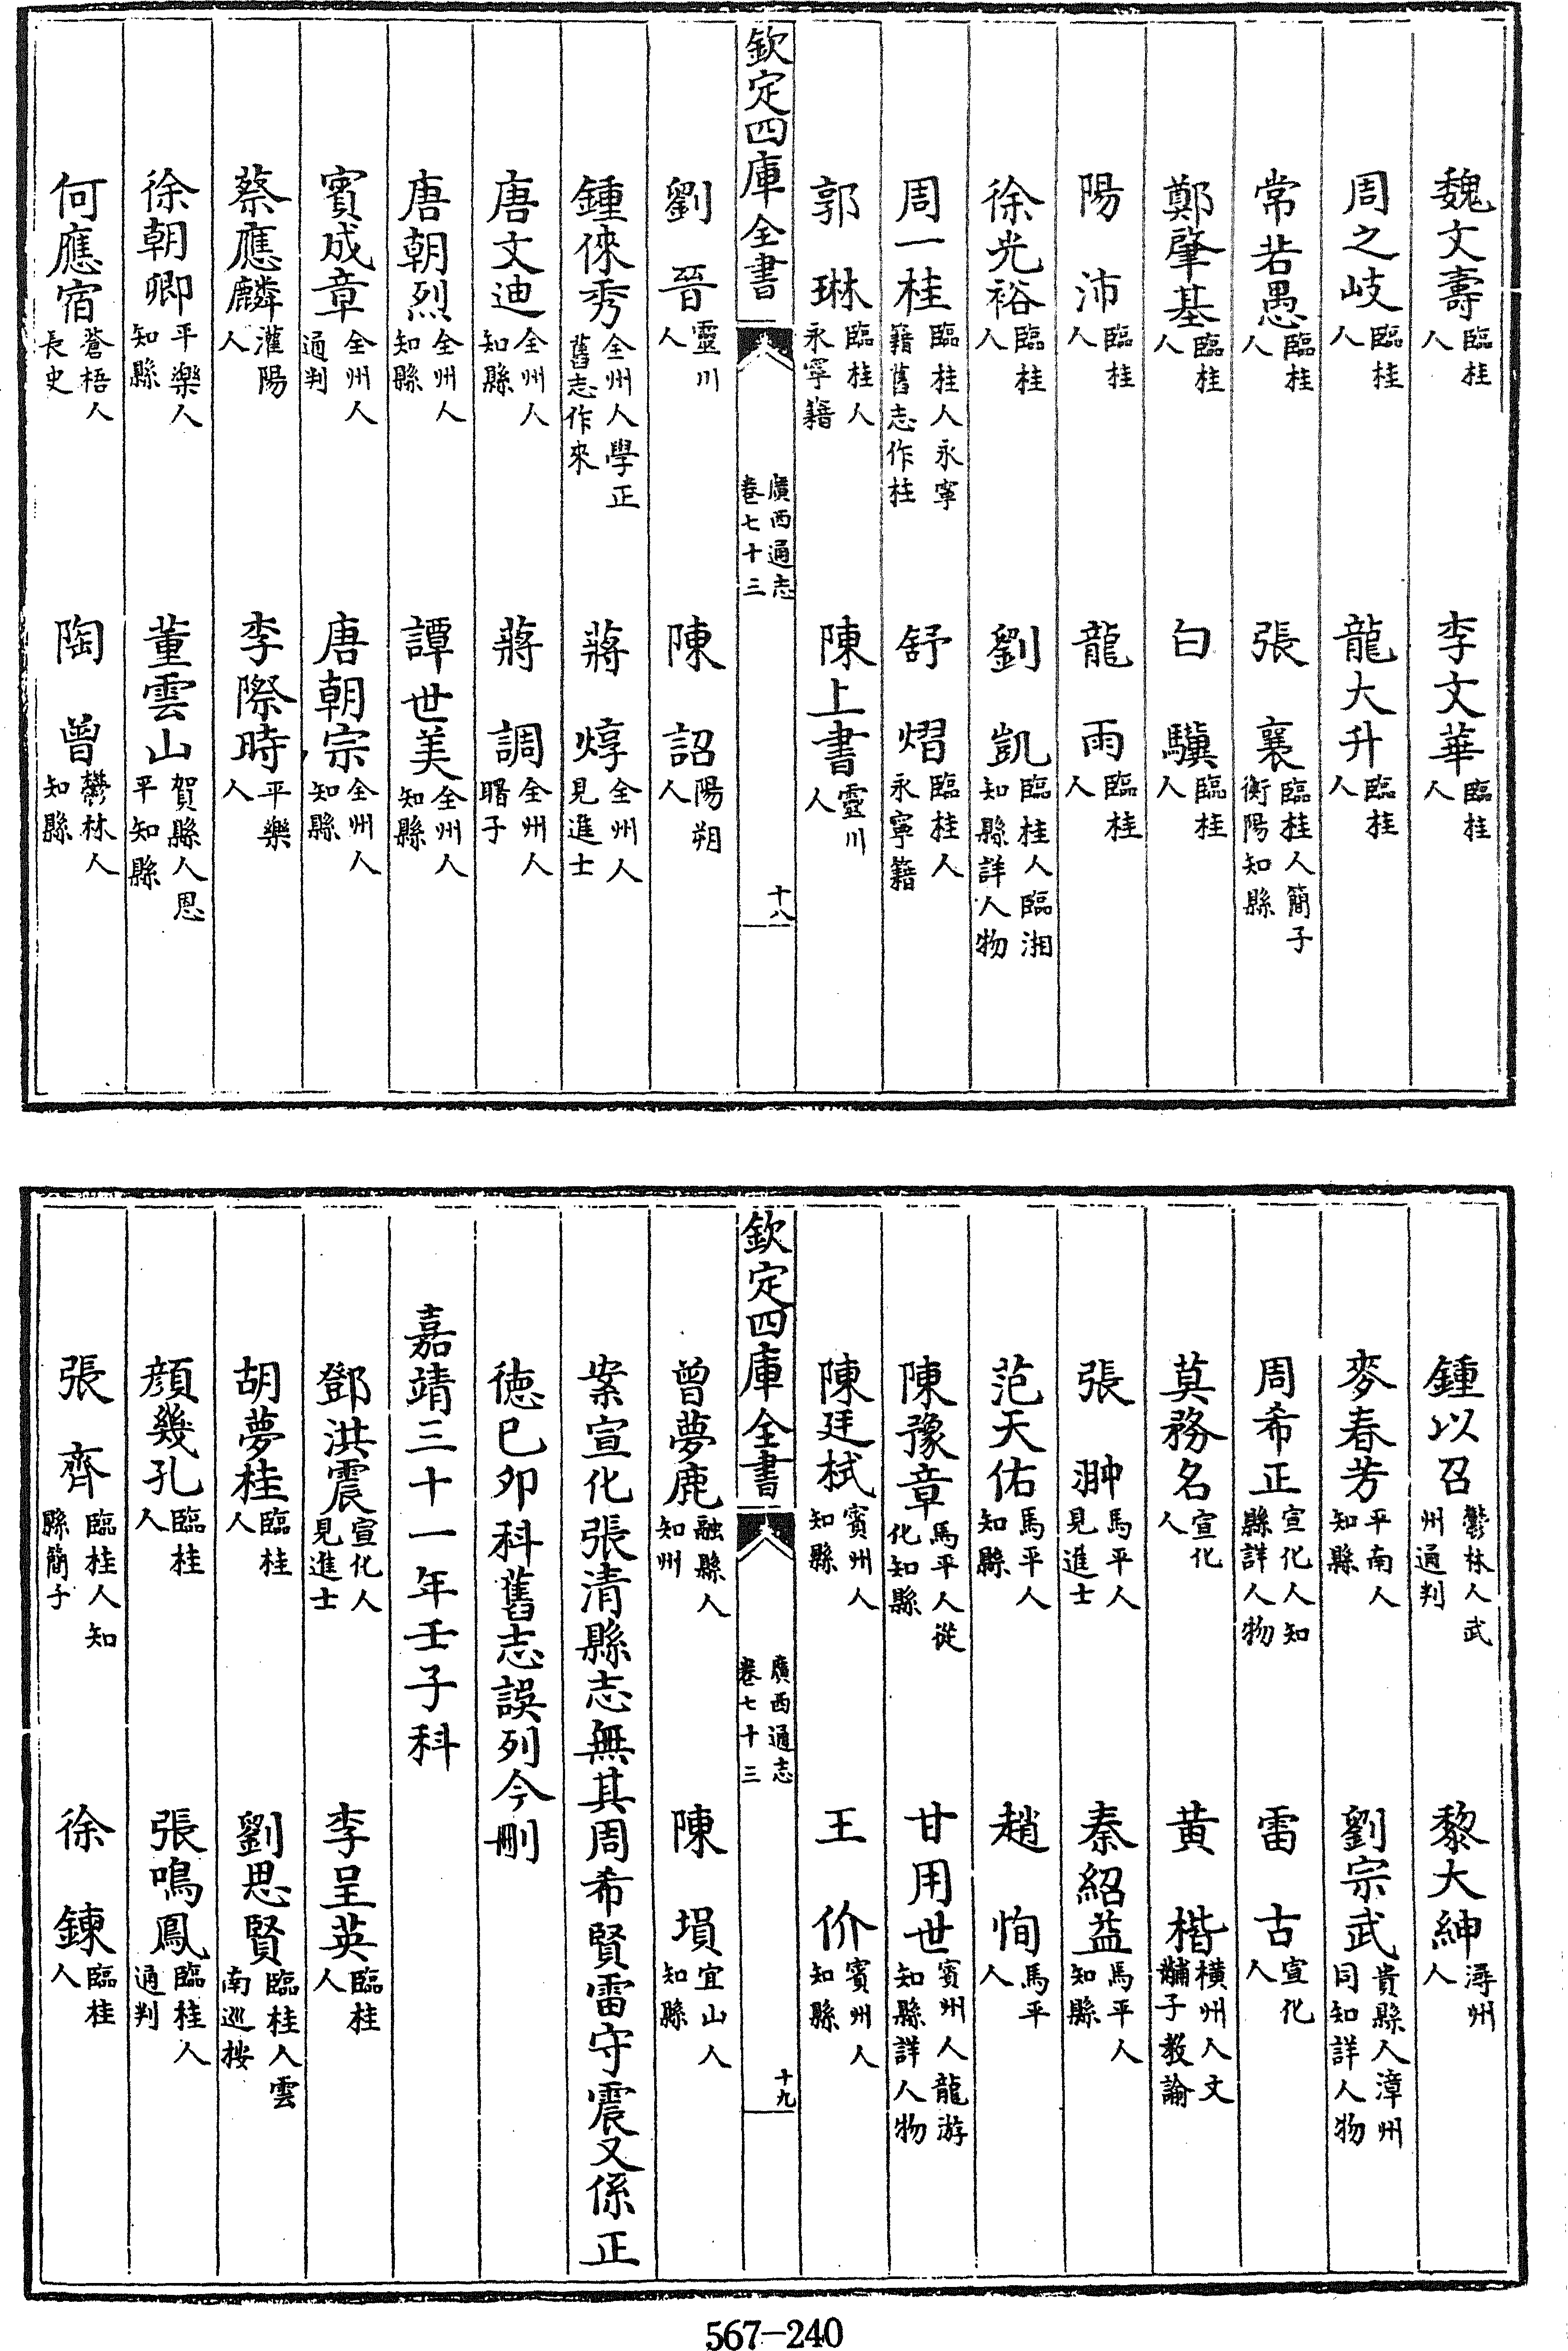 魏文壽臨桂人　李文華臨桂人
周之岐臨桂人　龍大升臨桂人
常若愚臨桂人　張　襄臨桂人簡子衡陽知縣
鄭肇基臨桂人　白　驥臨桂人
陽　沛臨桂人　龍　雨臨桂人
徐光裕臨桂人　劉　凱臨桂人臨湘知縣詳人物
周一桂臨桂人永寧籍舊志作柱　舒　熠臨桂人永寧籍
郭　琳臨桂人永寧籍　陳上書靈川人
欽定四庫全書　廣西通志卷七十三　十八
劉　晉靈川人　陳　詔陽朔人
鍾倈秀全州人學正舊志作來　蔣　焞全州人見進士
唐文迪全州人知縣　蔣　調全州人曙子
唐朝烈全州人知縣　譚世美全州人知縣
賓成章全州人通判　唐朝宗全州人知縣
蔡應麟灌陽人　李際時平樂人
徐朝卿平樂人知縣　董雲山賀縣人恩平知縣
何應宿蒼梧人長史　陶　曾鬱林人知縣
鍾以召鬱林人武州通判　黎大紳潯州人
麥春芳平南人知縣　劉宗武貴縣人漳州同知詳人物
周希正宣化人知縣詳人物　雷　古宣化人
莫務名宣化人　黃　楷橫州人文黼子教諭
張　翀馬平人見進士　秦紹益馬平人知縣
范天佑馬平人知縣　趙　恂馬平人
陳豫章馬平人從化知縣　甘用世賓州人龍游知縣詳人物
陳廷栻賓州人知縣　王　价賓州人知縣
欽定四庫全書　廣西通志卷七十三　十九
曾夢鹿融縣人知州　陳　塤宜山人知縣
案宣化張清縣志無其周希賢雷守震又係正
德已夘科舊志誤列今刪
嘉靖三十一年壬子科
鄧洪震宣化人見進士　李呈英臨桂人
胡夢桂臨桂人　劉思賢臨桂人雲南巡按
顏幾孔臨桂人　張鳴鳳臨桂人通判
張　齊臨桂人知縣簡子　徐　鍊臨桂人
567—240